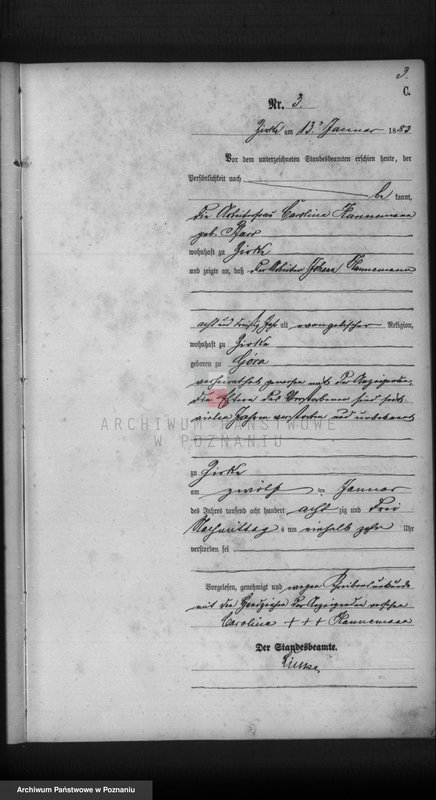 3.
C.
Nr. 3.
Zirke am 13. Januar 1883
Vor dem unterzeichneten Standesbeamten erschien heute, der
Persönlichkeit nach
be kannt,
die Arbeiterfrau Caroline Hannemann
geb.
wohnhaft zu Zirke
und zeigte an, daß der Arbeiter Hannemann
acht und dreißig Jahr alt, evangelischer Religion,
wohnhaft zu Zirke
geboren zu Góra
verheirathet gewesen mit der Anzeigenden,
die Eltern des Verstorbenen sind seit
vielen Jahren verstorben und unbekannt
ARCHIWUM PAŃSTWOWE
W POZNANIU
zu Zirke
am zwölf ten Januar
des Jahres tausend acht hundert acht zig und drei
Nachmittag s um einhalb zehn Uhr
verstorben sei
Vorgelesen, genehmigt und wegen
mit den Handzeichen der Anzeigenden versehen
Caroline +++ Hannemann
Der Standesbeamte.
Archiwum Państwowe w Poznaniu